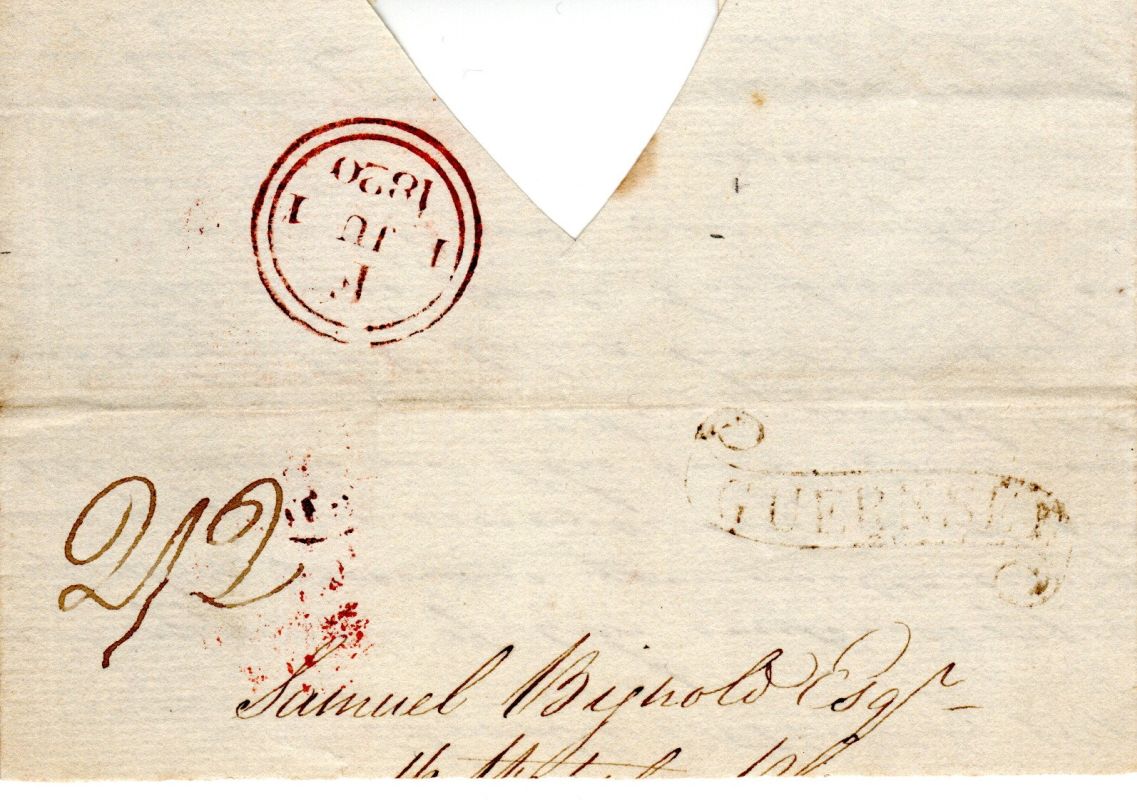 F
1 JU 1
1820
GUERNSEY
2/2
Samuel Bignold Esqr